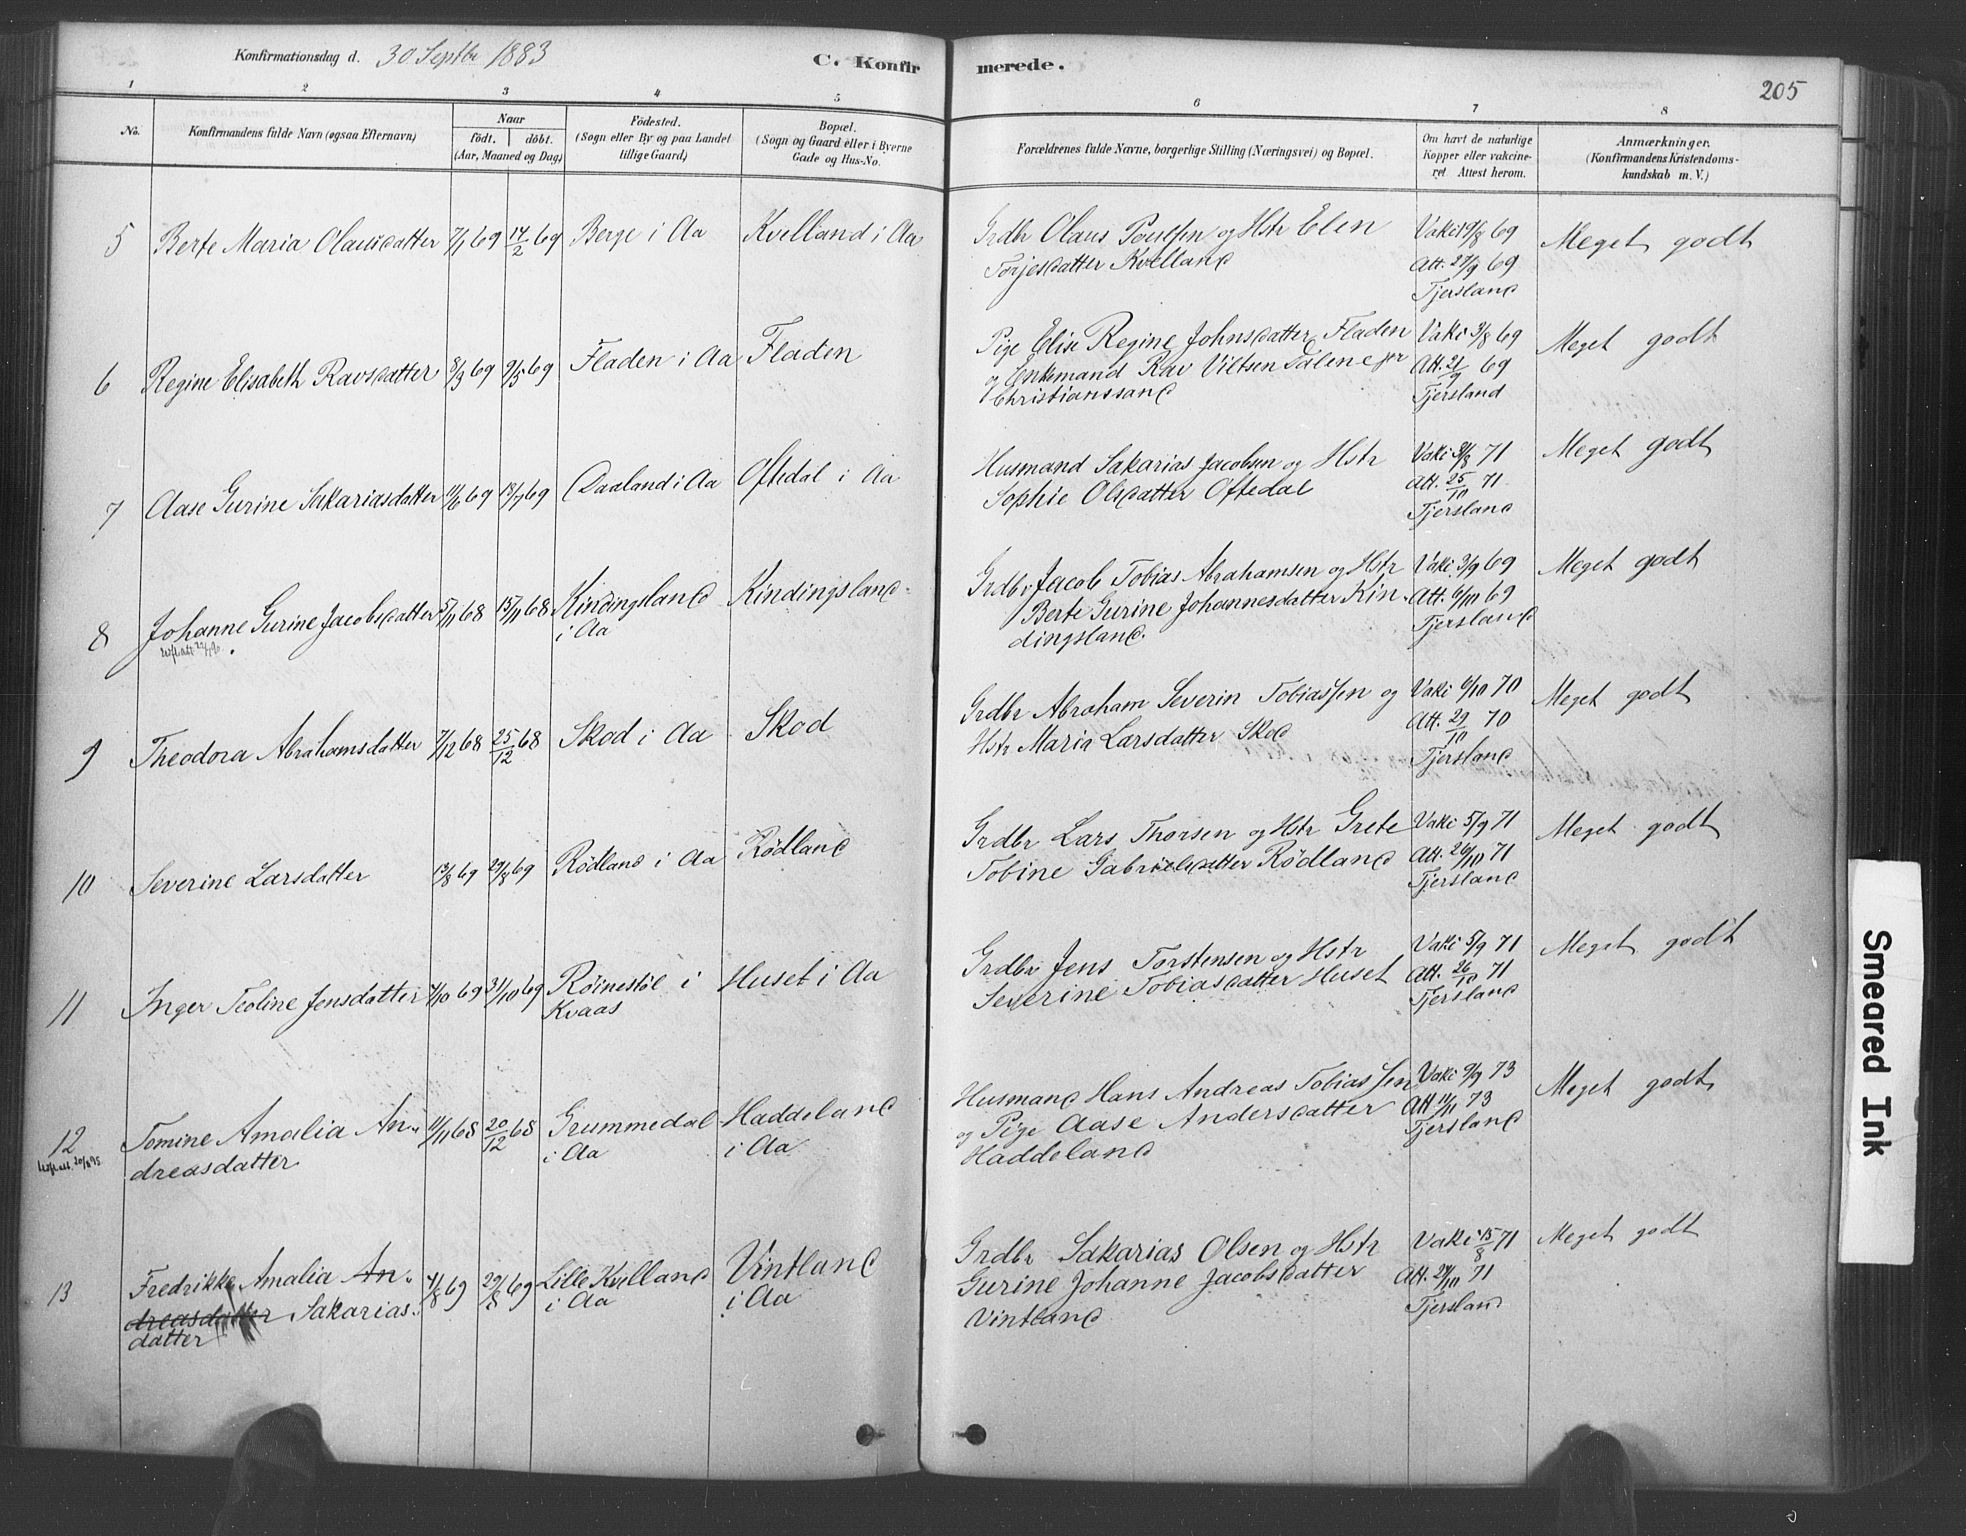 Konfirmationsdag d. 30 Septbr 1883
C. Konfirmerede.
205
1 2 3 4 5 6 7 8
No.
Konfirmandens fulde Navn (ogsaa Efternavn)
Naar
födt. döbt.
(Aar, Maaned og Dag)
Födested.
(Sogn eller By og paa Landet
tillige Gaard)
Bopæl.
(Sogn og Gaard eller i Byerne
Gade og Hus-No.
Forældrenes fulde Navne, borgerlige Stilling (Næringsvei) og Bopæl.
Om havt de naturlige
Kopper eller vakcine-
ret Attest herom.
Anmærkninger.
(Konfirmandens Kristendoms-
kundskab m. V.)
5 Berte Maria Olausdatter 7/1 69 14/2 69 Berge i Aa Kvelland i Aa
Grdbr Olaus Poulsen og Hstr Elen
Torjesdatter Kvelland
Vaki 19/8 69
Att. 27/9 69
Tjersland
Meget godt
6 Regine Elisabeth Ravsdatter 8/3 69 9/5 69 Fladen i Aa Fladen
Pige Elise Regine Johnsdatter Fladen
og Enkemand Rav Viltsen
Christianssand
Vaki 3/8 69
Att. 21/9 69
Tjersland
Meget godt
7 Aase Gurine Sakariasdatter 11/6 69 18/7 69 Daaland i Aa Oftedal i Aa
Husmand Sakarias Jacobsen og Hstr
Sophie Olsdatter Oftedal
Vaki 31/8 71
Att. 25/10 71
Tjersland
Meget godt
8 Johanne Gurine Jacobsdatter 5/11 68 15/11 68 Kindingsland
i Aa
Kindingsland
Grdbr Jacob Tobias Abrahamsen og Hstr
Berte Gurine Johannesdatter Kin-
dingsland.
Vaki 3/9 69
Att. 6/10 69
Tjersland
Meget godt
9 Theodora Abrahamsdatter 7/12 68 25/12 68 Skod i Aa Skod
Grdbr Abraham Severin Tobiassen og
Hstr Maria Larsdatter Skod
Vaki 6/10 70
Att. 29/10 70
Tjersland
Meget godt
10 Severine Larsdatter 13/8 69 29/8 69 Rödland i Aa Rödland
Grdbr Lars Thorsen og Hstr Grete
Tobine Gabrielsdatter Rödland
Vaki 5/9 71
Att. 26/10 71
Tjersland
Meget godt
11 Inger Teoline Jensdatter 7/10 69 31/10 69 Röinestöl i
Kvaas
Huset i Aa
Grdbr Jens Torstensen og Hstr
Severine Tobiasdatter Huset
Vaki 5/9 71
Att. 26/10 71
Tjersland
Meget godt
12 Tomine Amalia An-
dreasdatter
11/11 68 20/12 68 Grummedal
i Aa
Haddeland
i Aa
Husmand Hans Andreas Tobiassen
og Pige Aase Andersdatter
Haddeland
Vaki 9/9 73
Att 11/11 73
Tjersland
Meget godt
13 Fredrikke Amalia An-
dreasdatter Sakarias-
datter
7/8 69 29/8 69 Lille Kvelland
i Aa
Vintland
i Aa
Grdbr Sakarias Olsen og Hstr
Gurine Johanne Jacobsdatter
Vintland
Vaki 15/8 71
Att. 27/10 71
Tjersland
Meget godt
Smeared Ink